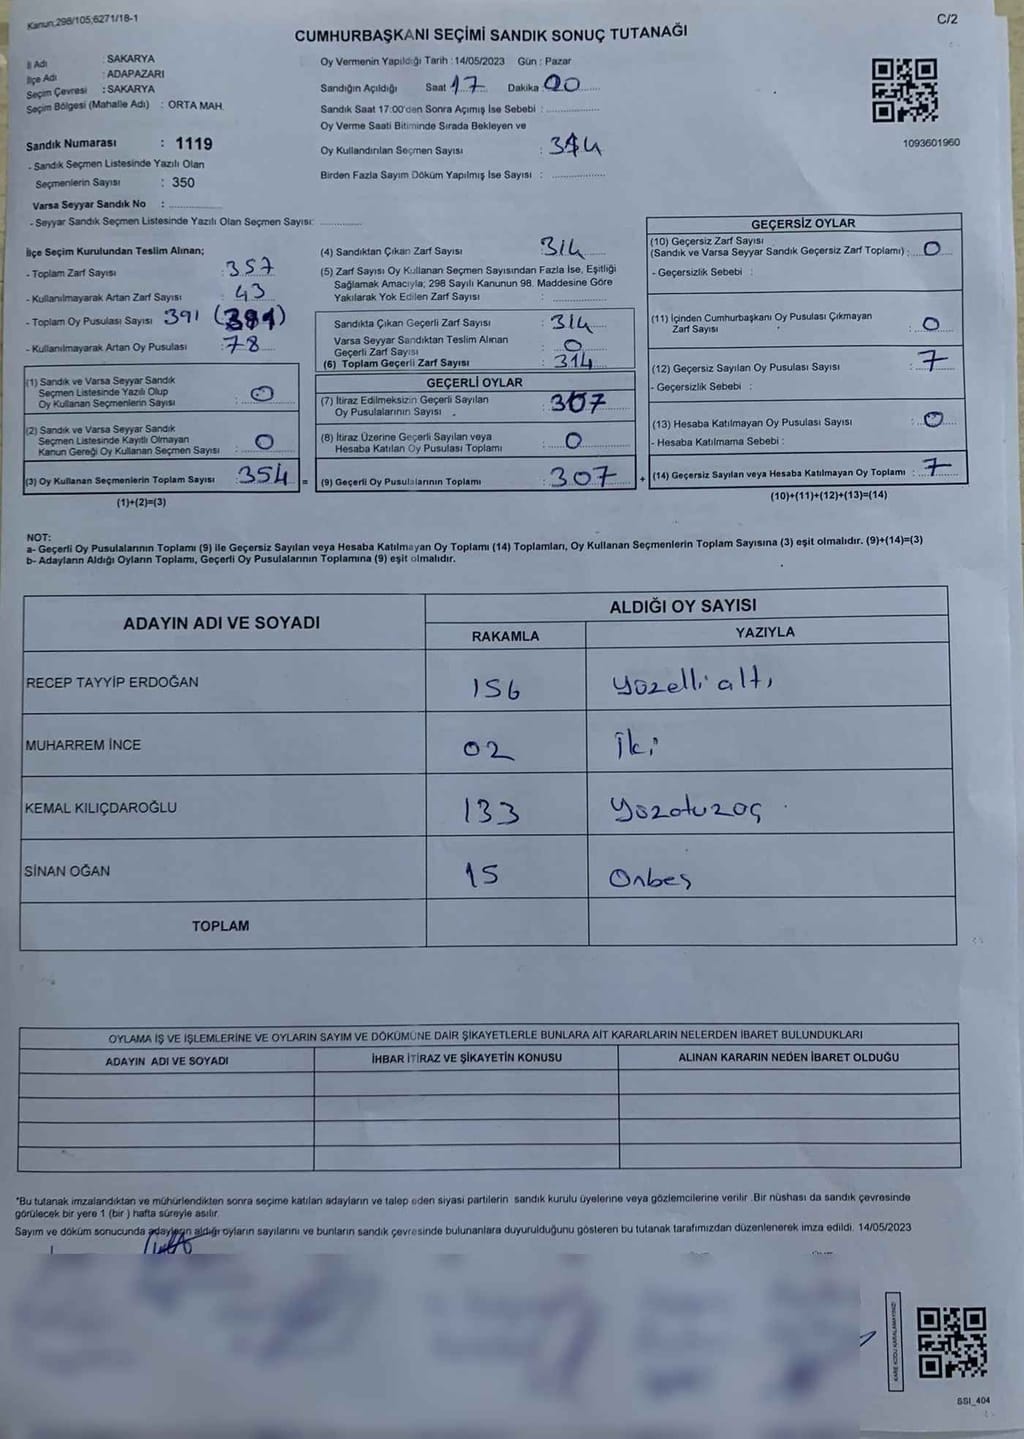 Kanun,298/105;6271/18-1
C/2
CUMHURBAŞKANI SEÇİMİ SANDIK SONUÇ TUTANAĞI
İl Adı : SAKARYA
İlçe Adı : ADAPAZARI
Seçim Çevresi : SAKARYA
Seçim Bölgesi (Mahalle Adı) : ORTA MAH.
Sandık Numarası : 1119
- Sandık Seçmen Listesinde Yazılı Olan
Seçmenlerin Sayısı : 350
Varsa Seyyar Sandık No :
- Seyyar Sandık Seçmen Listesinde Yazılı Olan Seçmen Sayısı:
Oy Vermenin Yapıldığı Tarih : 14/05/2023 Gün : Pazar
Sandığın Açıldığı Saat 17 Dakika 00
Sandık Saat 17:00'den Sonra Açımış İse Sebebi :
Oy Verme Saati Bitiminde Sırada Bekleyen ve
Oy Kullandırılan Seçmen Sayısı : 314
Birden Fazla Sayım Döküm Yapılmış İse Sayısı :
1093601960
İlçe Seçim Kurulundan Teslim Alınan;
- Toplam Zarf Sayısı : 357
- Kullanılmayarak Artan Zarf Sayısı : 43
- Toplam Oy Pusulası Sayısı 391 (391)
- Kullanılmayarak Artan Oy Pusulası : 78
(1) Sandık ve Varsa Seyyar Sandık
Seçmen Listesinde Yazılı Olup
Oy Kullanan Seçmenlerin Sayısı : 0
(2) Sandık ve Varsa Seyyar Sandık
Seçmen Listesinde Kayıtlı Olmayan
Kanun Gereği Oy Kullanan Seçmen Sayısı : 0
(3) Oy Kullanan Seçmenlerin Toplam Sayısı : 354 =
(1)+(2)=(3)
(4) Sandıktan Çıkan Zarf Sayısı : 314
(5) Zarf Sayısı Oy Kullanan Seçmen Sayısından Fazla İse, Eşitliği
Sağlamak Amacıyla; 298 Sayılı Kanunun 98. Maddesine Göre
Yakılarak Yok Edilen Zarf Sayısı :
Sandıkta Çıkan Geçerli Zarf Sayısı : 314
Varsa Seyyar Sandıktan Teslim Alınan
Geçerli Zarf Sayısı : 0
(6) Toplam Geçerli Zarf Sayısı : 314
GEÇERLİ OYLAR
(7) İtiraz Edilmeksizin Geçerli Sayılan
Oy Pusulalarının Sayısı : 307
(8) İtiraz Üzerine Geçerli Sayılan veya
Hesaba Katılan Oy Pusulası Toplamı : 0
(9) Geçerli Oy Pusulalarının Toplamı : 307 +
GEÇERSİZ OYLAR
(10) Geçersiz Zarf Sayısı
(Sandık ve Varsa Seyyar Sandık Geçersiz Zarf Toplamı) : 0
- Geçersizlik Sebebi :
(11) İçinden Cumhurbaşkanı Oy Pusulası Çıkmayan
Zarf Sayısı : 0
(12) Geçersiz Sayılan Oy Pusulası Sayısı : 7
- Geçersizlik Sebebi :
(13) Hesaba Katılmayan Oy Pusulası Sayısı : 0
- Hesaba Katılmama Sebebi :
(14) Geçersiz Sayılan veya Hesaba Katılmayan Oy Toplamı : 7
(10)+(11)+(12)+(13)=(14)
NOT:
a- Geçerli Oy Pusulalarının Toplamı (9) ile Geçersiz Sayılan veya Hesaba Katılmayan Oy Toplamı (14) Toplamları, Oy Kullanan Seçmenlerin Toplam Sayısına (3) eşit olmalıdır. (9)+(14)=(3)
b- Adayların Aldığı Oyların Toplamı, Geçerli Oy Pusulalarının Toplamına (9) eşit olmalıdır.
ADAYIN ADI VE SOYADI
ALDIĞI OY SAYISI
RAKAMLA YAZIYLA
RECEP TAYYİP ERDOĞAN 156 Yüzelli altı
MUHARREM İNCE 02 İki
KEMAL KILIÇDAROĞLU 133 Yüzotuzüç
SİNAN OĞAN 15 Onbeş
TOPLAM
OYLAMA İŞ VE İŞLEMLERİNE VE OYLARIN SAYIM VE DÖKÜMÜNE DAİR ŞİKAYETLERLE BUNLARA AİT KARARLARIN NELERDEN İBARET BULUNDUKLARI
ADAYIN ADI VE SOYADI İHBAR İTİRAZ VE ŞİKAYETİN KONUSU ALINAN KARARIN NEDEN İBARET OLDUĞU
*Bu tutanak imzalandıktan ve mühürlendikten sonra seçime katılan adayların ve talep eden siyasi partilerin sandık kurulu üyelerine veya gözlemcilerine verilir .Bir nüshası da sandık çevresinde
görülecek bir yere 1 (bir ) hafta süreyle asılır.
Sayım ve döküm sonucunda adayların aldığı oyların sayılarını ve bunların sandık çevresinde bulunanlara duyurulduğunu gösteren bu tutanak tarafımızdan düzenlenerek imza edildi. 14/05/2023
KARE KODU KARALAMAYINIZ!
SSI_404